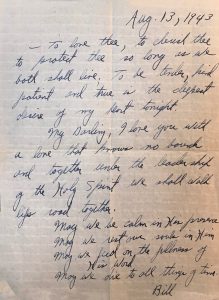 Aug. 13, 1943
— To love thee, to cherish thee
to protect thee so long as we
both shall live. To be tender, kind
patient and true is the deepest
desire of my heart tonight.
My Darling, I love you with
a love that knows no bound
and together under the leadership
of the Holy Spirit we shall walk
life's road together.
May we be calm in His presence
May we rest our souls in Him
May we feed on the fullness of
His Word
May we die to all things of time
Bill